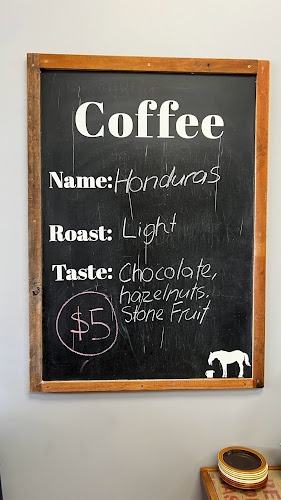 Coffee
Name: Honduras
Roast: Light
Taste: Chocolate,
hazelnuts.
Stone Fruit
$5